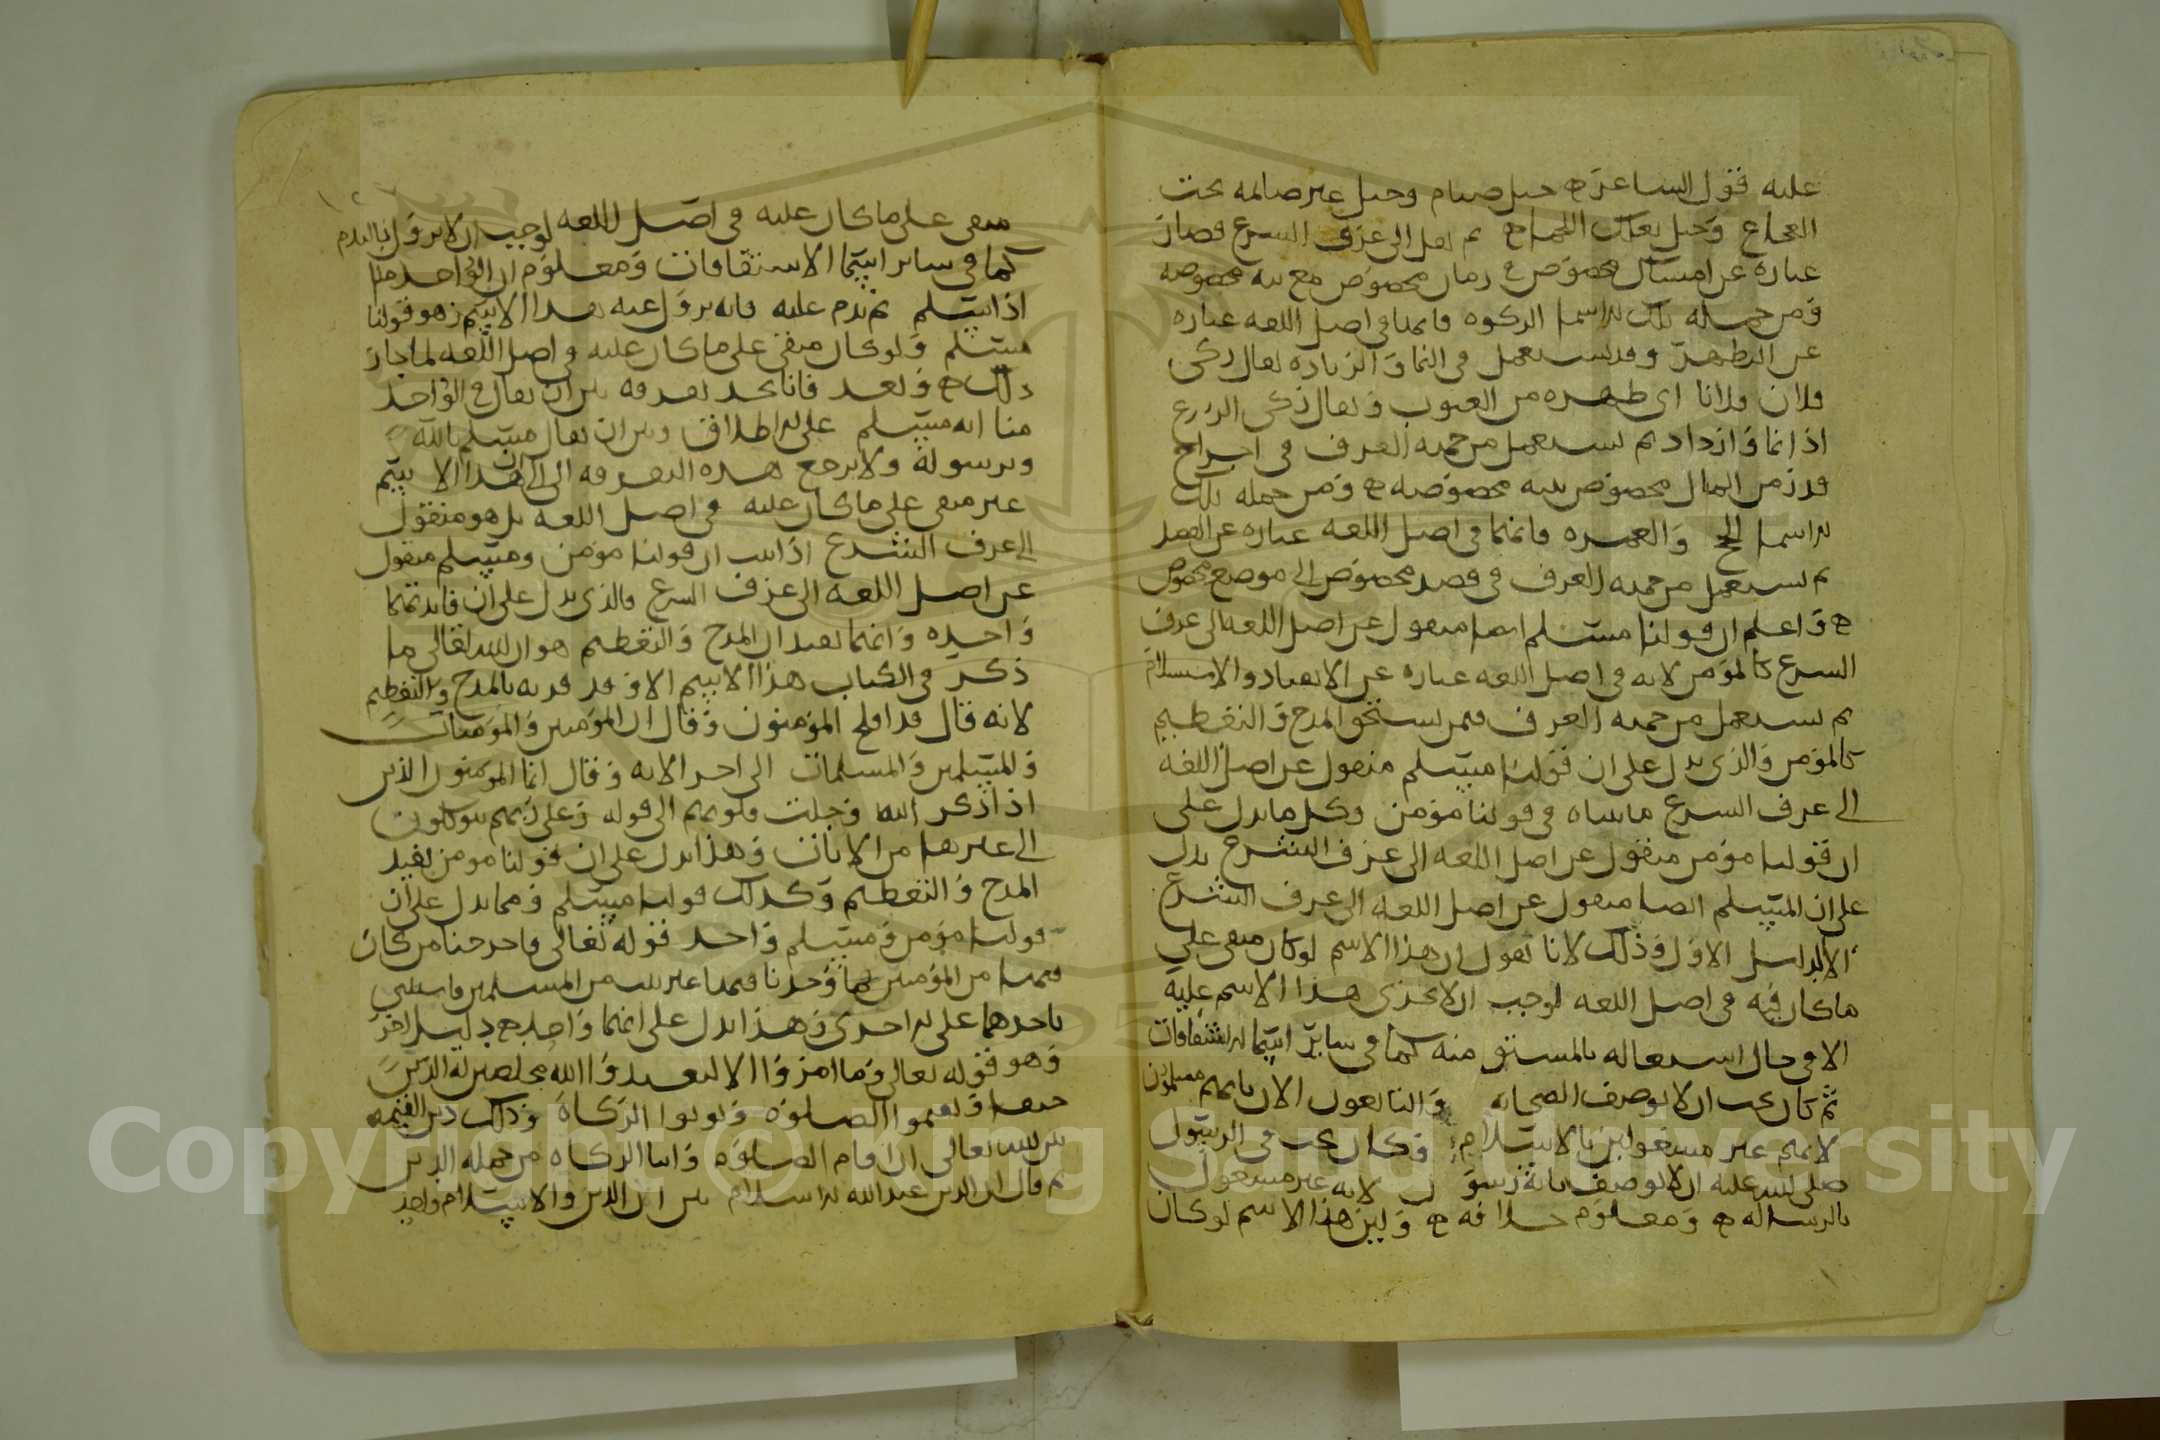 عليه قول الشاعر ه خيل صيام وخيل غير صايمة تحت
العجاج وخيل تعلك اللجما ه ثم نقل الى عرف الشرع فصار
عبارة عن امساك مخصوص في زمان مخصوص مع نية مخصوصة
ومن جملة تلك الاسما الزكوة فانها في اصل اللغة عبارة
عن التطهر وقد يستعمل في النما والزيادة يقال زكى
فلان فلانا اى طهره من العيوب ويقال زكى الزرع
اذا نما وازداد ثم يستعمل من جهة العرف في اخراج
قدر من المال مخصوص بنية مخصوصة ه ومن جملة تلك
الاسما الحج والعمرة فانهما في اصل اللغة عبارة عن القصد
ثم يستعمل من جهة العرف في قصد مخصوص الى موضع مخصوص
ه واعلم ان قولنا مسلم ايضا منقول عن اصل اللغة الى عرف
الشرع كالمؤمن لانه في اصل اللغة عبارة عن الانقياد والاستسلام
ثم يستعمل من جهة العرف فيمن يستحق المدح والتعظيم
كالمؤمن والذى يدل على ان قولنا مسلم منقول عن اصل اللغة
الى عرف الشرع ما بيناه في قولنا مؤمن وكل ما يدل على
ان قولنا مؤمن منقول عن اصل اللغة الى عرف الشرع يدل
على ان المسلم ايضا منقول عن اصل اللغة الى عرف الشرع
الا الدليل الاول وذلك لانا نقول ان هذا الاسم لو كان مبقى على
ما كان فيه في اصل اللغة لوجب ان لا يجرى هذا الاسم عليه
الا في حال اشتغاله بالمشتق منه كما في سائر اسما الاشتقاقات
ثم كان يجب ان لا يوصف الصحابة والتابعون الان بانهم مسلمون
لانهم غير مشغولين بالاسلام وكان يجب في الرسول
صلى الله عليه ان لا يوصف بانه رسول لانه غير مشغول
بالرسالة ه ومعلوم خلافه ه ولين هذا الاسم لو كان
مبقى على ما كان عليه في اصل اللغة لوجب ان لا يزول بالندم
كما في سائر اسما الاشتقاقات ومعلوم ان الواحد منا
اذا اسلم ثم ندم عليه فانه يزول عنه هذا الاسم وهو قولنا
مسلم ولو كان مبقى على ما كان عليه في اصل اللغة لما جاز
ذلك ه وبعد فانا نجد تفرقة بين ان يقال في الواحد
منا انه مسلم على الاطلاق وبين ان يقال مسلم بالله
وبرسوله ولا يرجع هذه التفرقة الا الى ان هذا الاسم
غير مبقى على ما كان عليه في اصل اللغة بل هو منقول
الى عرف الشرع اذا ثبت ان قولنا مؤمن ومسلم منقول
عن اصل اللغة الى عرف الشرع فالذى يدل على ان فايدتهما
واحدة وانهما يفيدان المدح والتعظيم هو ان الله تعالى ما
ذكر في الكتاب هذا الاسم الا وقد قرنه بالمدح والتعظيم
لانه قال قد افلح المؤمنون وقال ان المؤمنين والمؤمنات
والمسلمين والمسلمات الى اخر الاية وقال انما المؤمنون الذين
اذا ذكر الله وجلت قلوبهم الى قوله وعلى ربهم يتوكلون
الى غيرها من الايات وهذا يدل على ان قولنا مومن يفيد
المدح والتعظيم وكذلك قولنا مسلم ومما يدل على ان
قولنا مؤمن ومسلم واحد قوله تعالى فاخرجنا من كان
فيها من المؤمنين فما وجدنا فيها غير بيت من المسلمين فاستثنى
باحدهما على الاخرى وهذا يدل على انهما واحد ه دليل اخر
وهو قوله تعالى وما امروا الا ليعبدوا الله مخلصين له الدين
حنفا ويقيموا الصلوة ويوتوا الزكاة وذلك دين القيمة
بين الله تعالى ان اقام الصلوة وايتا الزكاة من جملة الدين
ثم قال ان الدين عند الله الاسلام بين ان الدين والاسلام واحد